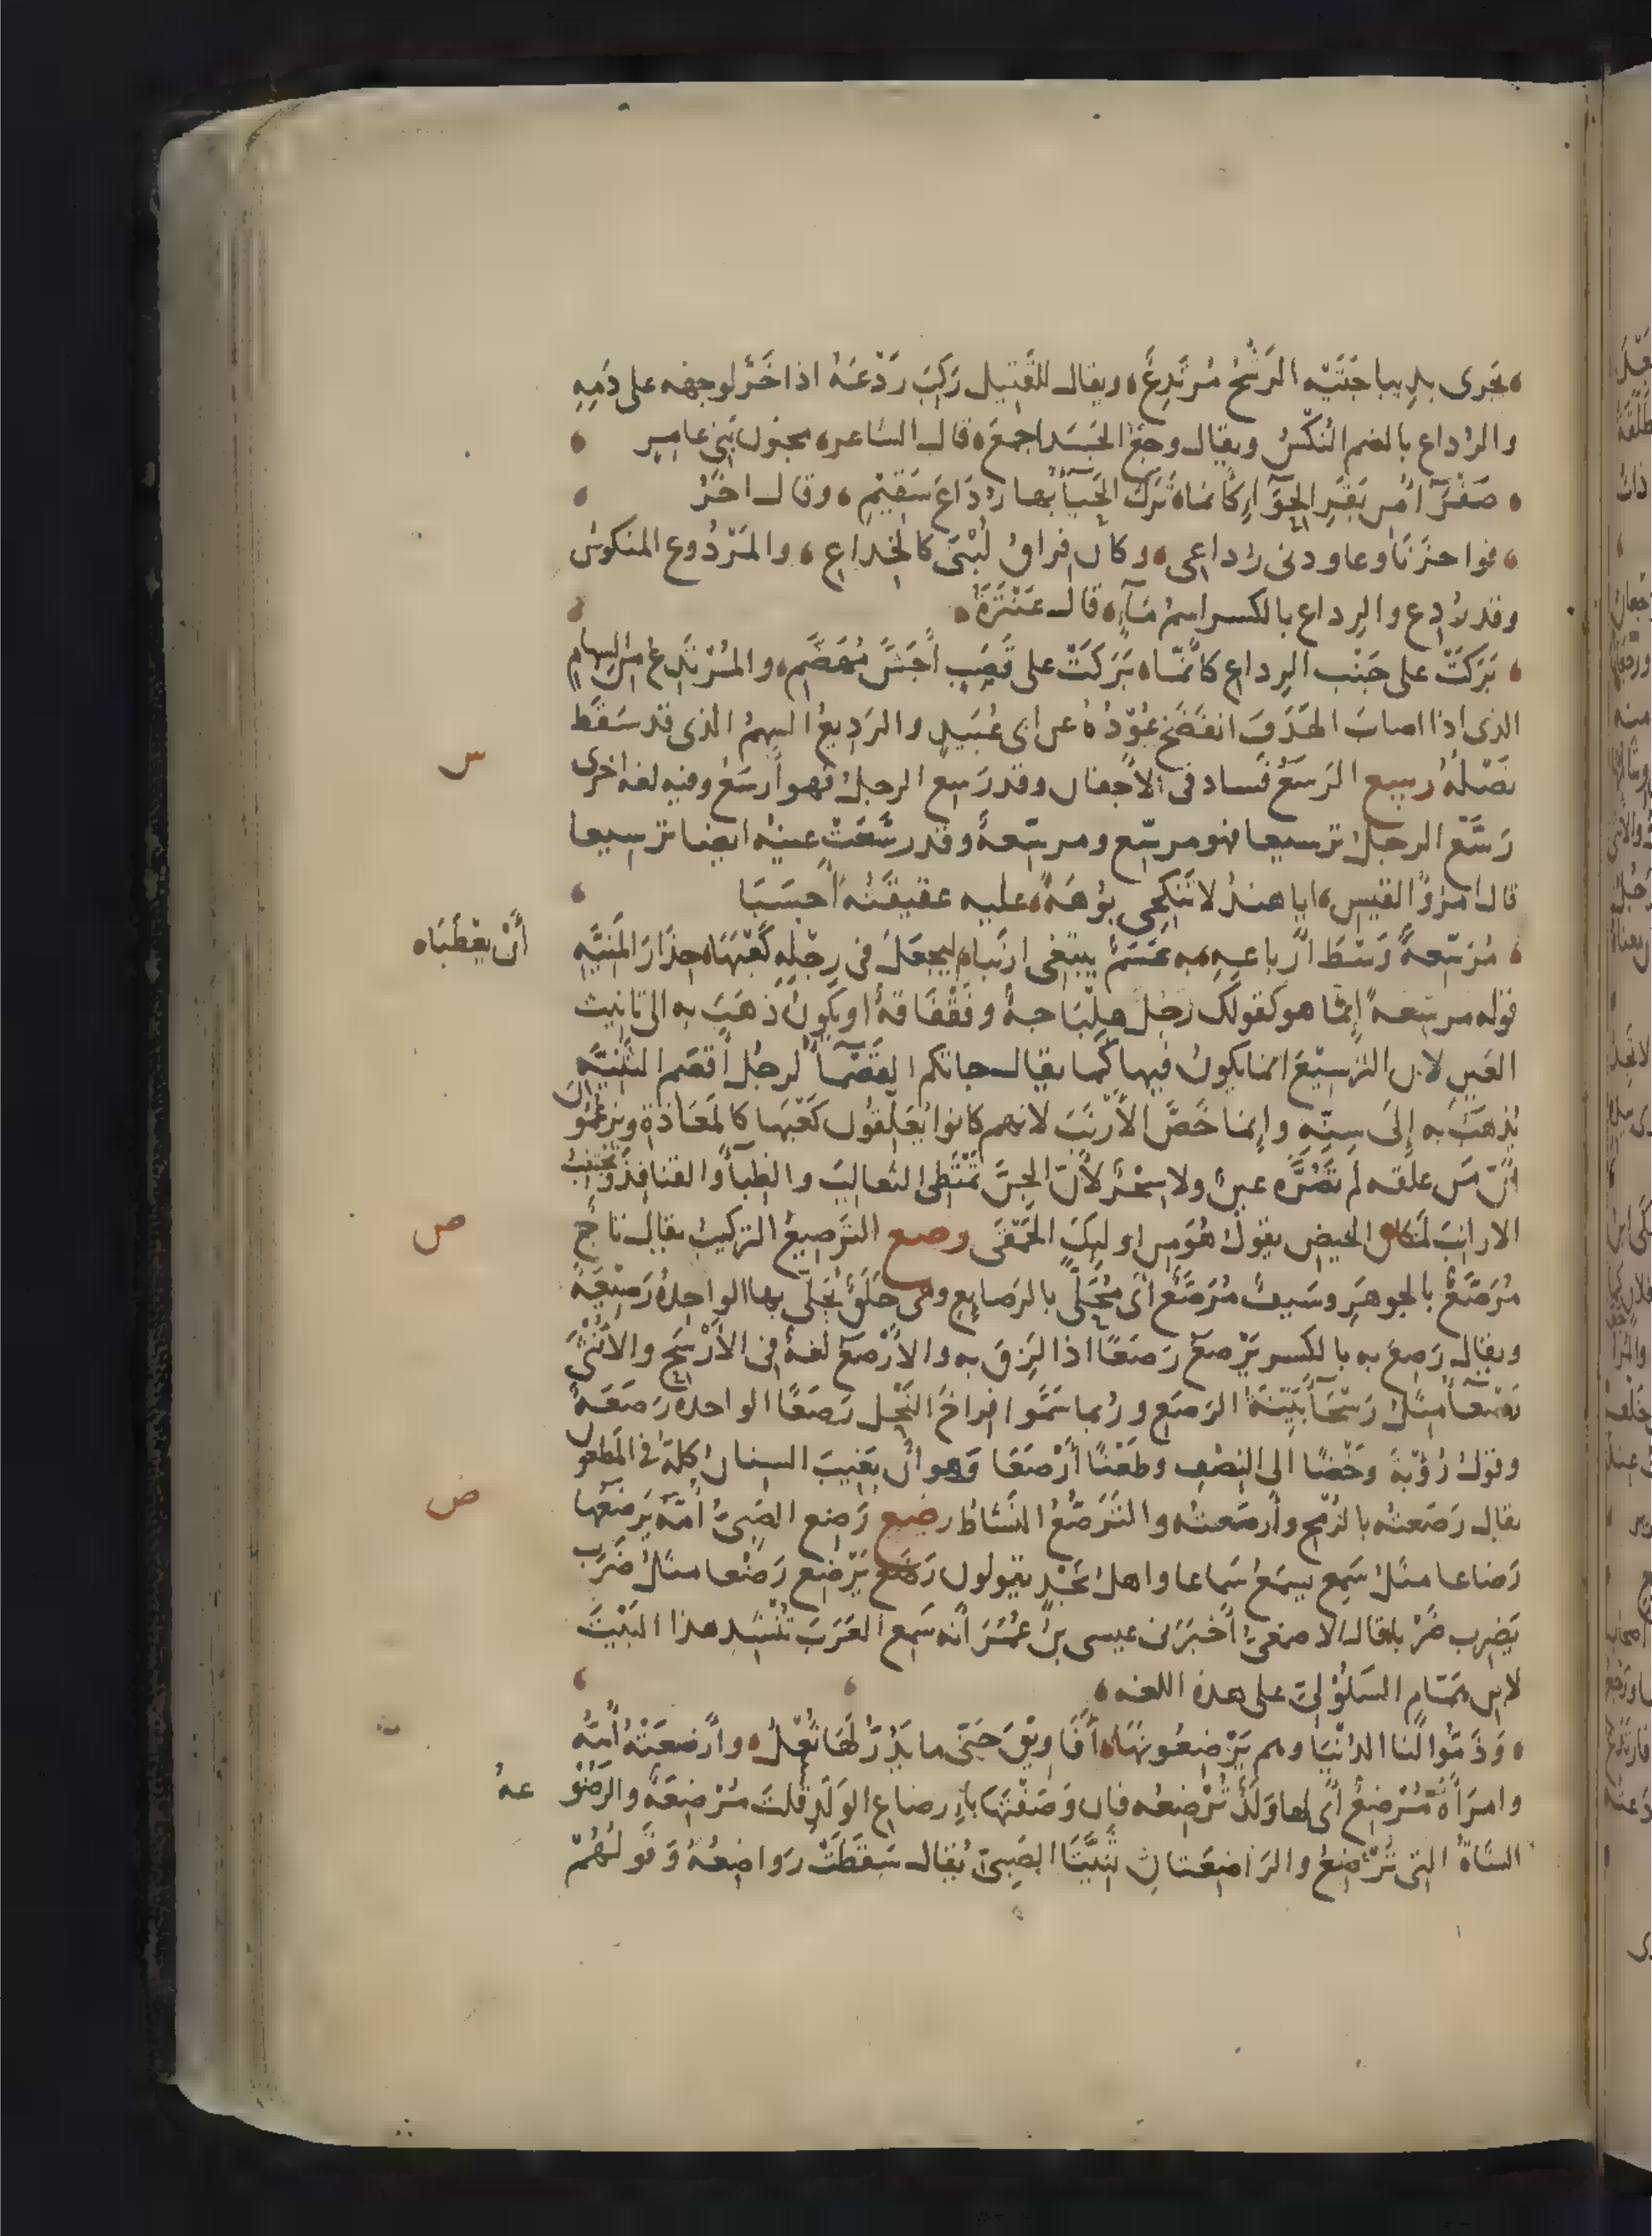 يَجرى بدِيباجَتَيْه الرَشْحُ مُرْتَدِعُ، ويقال للقَتيل رَكِبَ رَدْعَهُ اذا خَرَّ لوجهه على دَمِهِ
والرُداع بالضم النُكْسُ ويقال وجعُ الجَسَد اجمعَ، قال الشاعر، مجنون بَنِى عامِر
صَفْرَآءُ مِن بَقَرِ الجِوَآءِ كأنما، تَرَك الحَيآءُ بها رُدَاعَ سَقِيْمِ، وقال اخَرُ
فواحَزَنَا وعاودنى رُداعِى، وكان فِراقُ لُبْنَى كالخِداعِ، والمَرْدُوع المنكوسُ
وقد رُدِع والرِداع بالكسر اسمُ مَآءٍ، قال عَنْتَرَةُ،
بَرَكَتْ على جَنْب الرِداعِ كأنَّمَا، بَرَكَتْ على قَصَبٍ أَجَشَّ مُهَضَّمِ، والمُرْتَدِعُ مِنَ السِهامِ
الذى اذا اصابَ الهَدَفَ انفَضَخ عُوْدُهُ عن ابى عُبَيدٍ والرَدِيعُ السهمُ الذى قد سَقَط
نَصْلُهُ رسع الرَسَعُ فَساد فى الأَجفان وقد رَسِع الرجلُ فهو أَرسَعُ وفيه لغه اخرى
س
رَسَّعَ الرجلُ ترسيعا فهو مرسّع ومرسّعةٌ وقد رسَّعَتْ عينُه ايضا ترسيعا
قال امرؤُ القيس، ايا هندُ لا تَنكِحِى بُوْهَةً، عليه عقيقَتُه أَحسَبَا
مُرَسّعةٌ وَسْطَ أَرباعِهِ، به عَسَمٌ يبتغى ارنَبا، ليجعَلَ فى رِجْلِه كَعْبَهَا، حِذَارَ المَنِيَّةِ
أَنْ يَعْطَبَا،
قوله مرسّعةٌ إنَّما هو كقولك رجل هِلْبَاجةٌ وفَقْفَاقةٌ او يكونُ ذَهَبَ به الى تانيث
العَينِ لان التَرسِيْعَ انما يكونُ فيها كما يقال جاتكم القَصْمآءُ لرجُل أَقصَم الثَنِيَّه
يُذهَبُ به إِلَى سِنِّهِ وإنما خَصَّ الأَرْنَبَ لانهم كانوا يُعَلِّقُون كَعْبَها كالمَعَاذةِ ويزعُمُون
أنّ مَن علقه لم تَضُرَّه عينٌ ولا سِحْرٌ لأنّ الجِنَّ تَمْتَطِى الثعالبَ والظِبآءَ والقنافِذَ وتَجتَنِبُ
الارانبَ لمكان الحيض يقولُ هُوَ من اولئِكَ الحَمْقَى رصع التَرصيعُ التركيبُ يقال تاجٌ
ص
مُرَصَّعٌ بالجوهَرِ وسَيفٌ مُرَصَّع أَى مُحَلًّى بالرَصايع وهى حَلَقٌ يُحَلَّى بها الواحِدةُ رَصِيْعَةٌ
ويقال رَصِعَ به بالكسر يَرْصَعُ رَصَعًا اذا لَزِقَ به والأَرْصَعُ لغةٌ فى الأَرْسَحِ والأُنْثَى
رَصْعآءُ مثلُ رَسْحَآءَ بَيِّنَةُ الرَصَعِ ورُبما سَمَّوا افراخَ النَحْل رَصَعًا الواحدة رَصَعَةٌ
وقولُ رُؤْبةَ وَخْضًا الى النِصْفِ وطَعْنًا أَرْصَعَا وَهو أن يَغِيبَ السِنانُ كلُّه فى المَطعون
يقال رَصَعتُه بالرُمْحِ وأرصَعتُه والتَرَصُّعُ النَشاطُ رضع رَضِع الصَبِىُّ أُمَّه يَرضَعُها
ض
رَضاعا مثلُ سَمِع يسمَعُ سَماعا واهلُ نَجْدٍ يقولون رَضَع يَرْضِع رَضْعا مثالُ ضَرَب
يَضرِب ضَرْبا، قال الاصمَعِىُّ أَخبَرَنى عيسى بنُ عُمَرَ أنّه سَمِع العَرَبَ تُنْشِد هذا البَيْتَ
لابن همَّامٍ السَلُوْلِىّ على هذه اللغه،
وَذَمُّوا لَنا الدُنْيا وهم يَرْضِعُونَهَا، أَفَاوِيْقَ حَتَّى ما يَدُرُّ لَها ثُعْلُ، وأَرضَعَتْهُ أُمُّه
وامرَأةٌ مُرْضِعٌ أَى لها وَلَدٌ تُرْضِعُه فان وَصَفْتَها بإِرضاع الوَلَدِ قلتَ مُرْضِعَةٌ والرَضُوعَةُ
الشاةُ التى تُرْضِعُ والرَاضِعَتانِ ثَنِيَّتَا الصَبِىّ يُقالُ سَقَطَتْ رَوَاضِعُهُ وَقَولُهُمْ